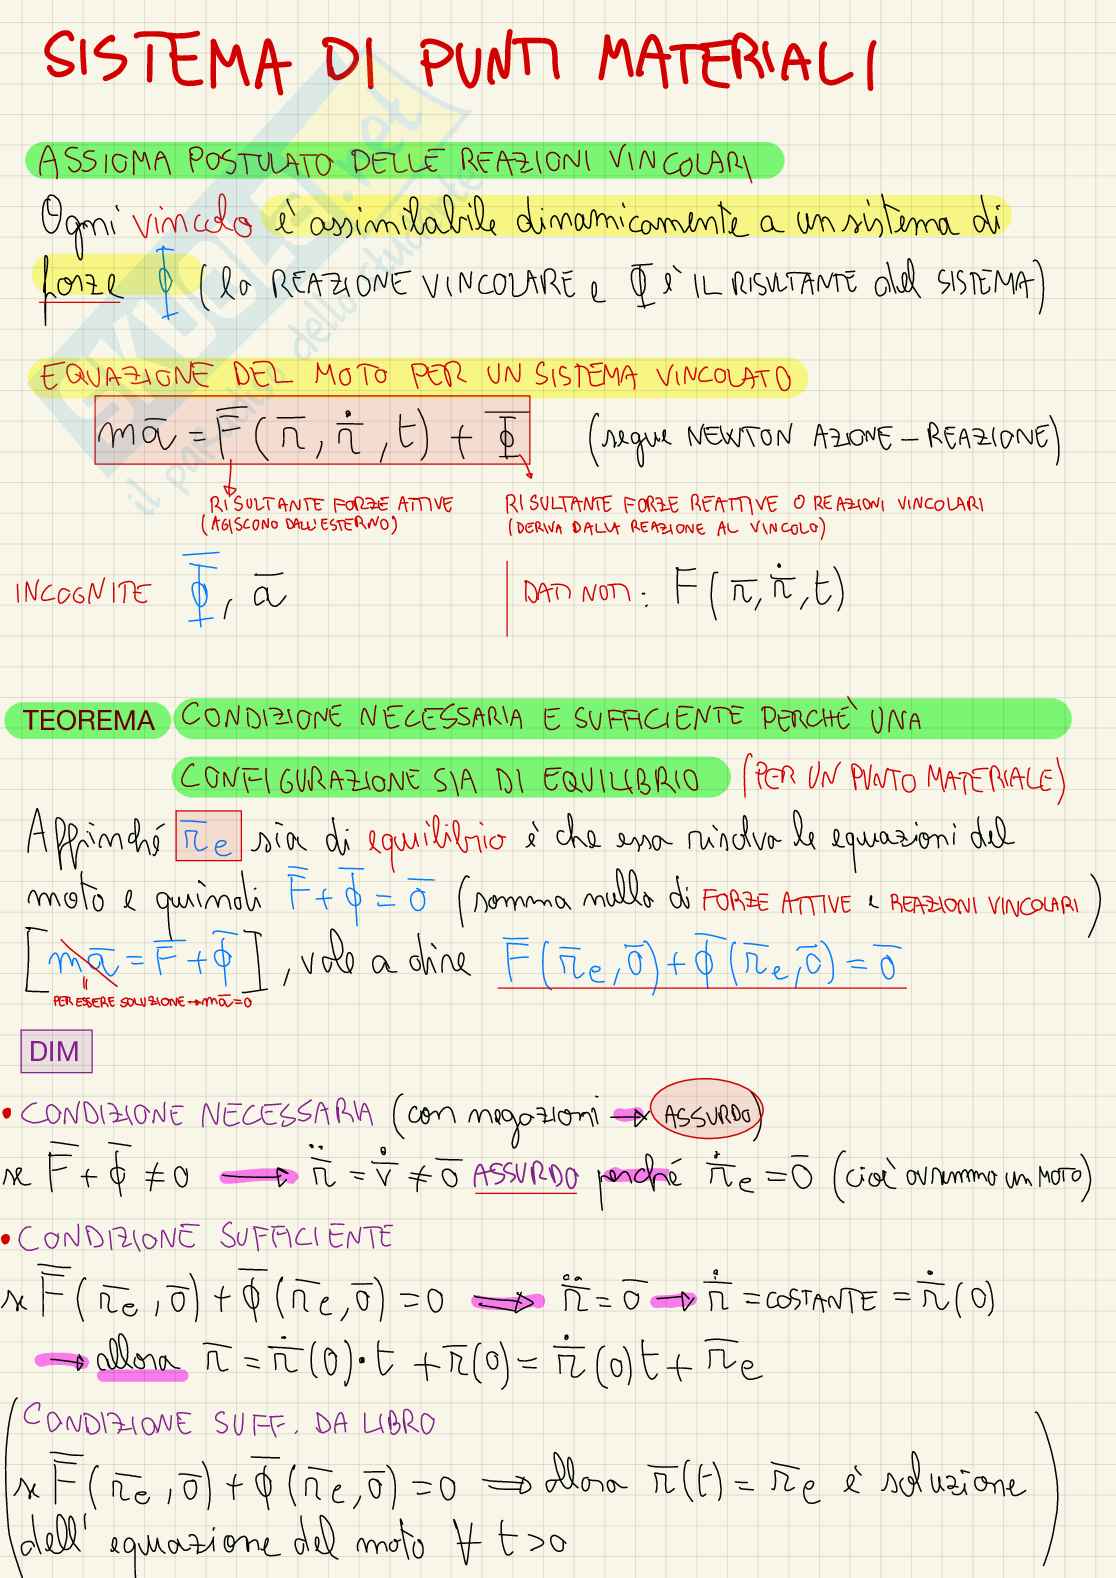 SISTEMA DI PUNTI MATERIALI
ASSIOMA POSTULATO DELLE REAZIONI VINCOLARI
Ogni vincolo è assimilabile dinamicamente a un sistema di
forze Φ (la REAZIONE VINCOLARE e Φ è IL RISULTANTE del SISTEMA)
EQUAZIONE DEL MOTO PER UN SISTEMA VINCOLATO
ma̅ = F̅(r̅, ṙ̅, t) + Φ̅ (segue NEWTON AZIONE-REAZIONE)
RISULTANTE FORZE ATTIVE RISULTANTE FORZE REATTIVE O REAZIONI VINCOLARI
(AGISCONO DALL'ESTERNO) (DERIVA DALLA REAZIONE AL VINCOLO)
INCOGNITE Φ̅, a̅ | DATI NOTI: F(r̅, ṙ̅, t)
TEOREMA CONDIZIONE NECESSARIA E SUFFICIENTE PERCHÈ UNA
CONFIGURAZIONE SIA DI EQUILIBRIO (PER UN PUNTO MATERIALE)
Affinché r̅e sia di equilibrio è che essa risolva le equazioni del
moto e quindi F̅ + Φ̅ = 0̅ (somma nulla di FORZE ATTIVE e REAZIONI VINCOLARI)
[ma̅ = F̅ + Φ̅], vale a dire F̅(r̅e, 0̅) + Φ̅(r̅e, 0̅) = 0̅
PER ESSERE SOLUZIONE → ma̅ = 0
DIM
• CONDIZIONE NECESSARIA (con negazioni → ASSURDO)
se F̅ + Φ̅ ≠ 0 → r̈̅ = v̇̅ ≠ 0̅ ASSURDO perché ṙ̅e = 0̅ (cioè avremmo un MOTO)
• CONDIZIONE SUFFICIENTE
se F̅(r̅e, 0̅) + Φ̅(r̅e, 0̅) = 0 ⟹ r̈̅ = 0̅ → ṙ̅ = COSTANTE = ṙ̅(0)
→ allora r̅ = ṙ̅(0)·t + r̅(0) = ṙ̅(0)t + r̅e
(CONDIZIONE SUFF. DA LIBRO
se F̅(r̅e, 0̅) + Φ̅(r̅e, 0̅) = 0 ⟹ allora r̅(t) = r̅e è soluzione
dell'equazione del moto ∀ t>0)
SKUOLA.net
il paradiso dello studente